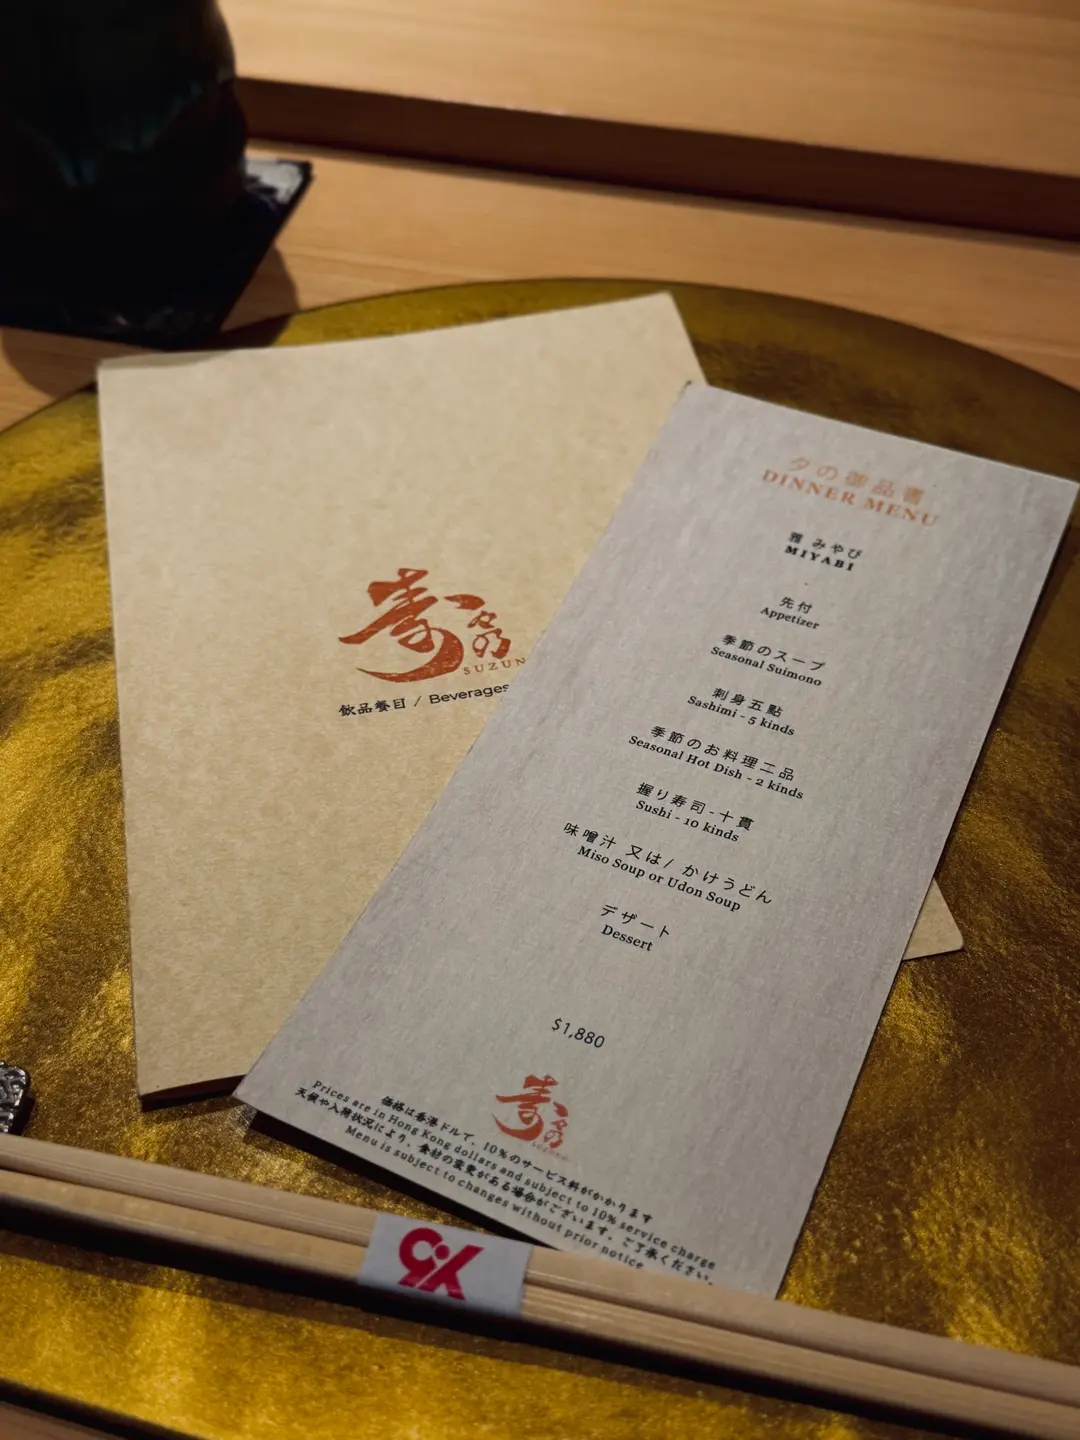 寿
々乃
SUZUN
飲品餐目 / Beverages
夕の御品書
DINNER MENU
雅 みやび
MIYABI
先付
Appetizer
季節のスープ
Seasonal Suimono
刺身五點
Sashimi - 5 kinds
季節のお料理二品
Seasonal Hot Dish - 2 kinds
握り寿司-十貫
Sushi - 10 kinds
味噌汁 又は/ かけうどん
Miso Soup or Udon Soup
デザート
Dessert
$1,880
寿
々乃
SUZUNO
価格は香港ドルで、10%のサービス料がかかります
Prices are in Hong Kong dollars and subject to 10% service charge
天候や入荷状況により、食材の変更がある場合がございます。ご了承ください。
Menu is subject to changes without prior notice